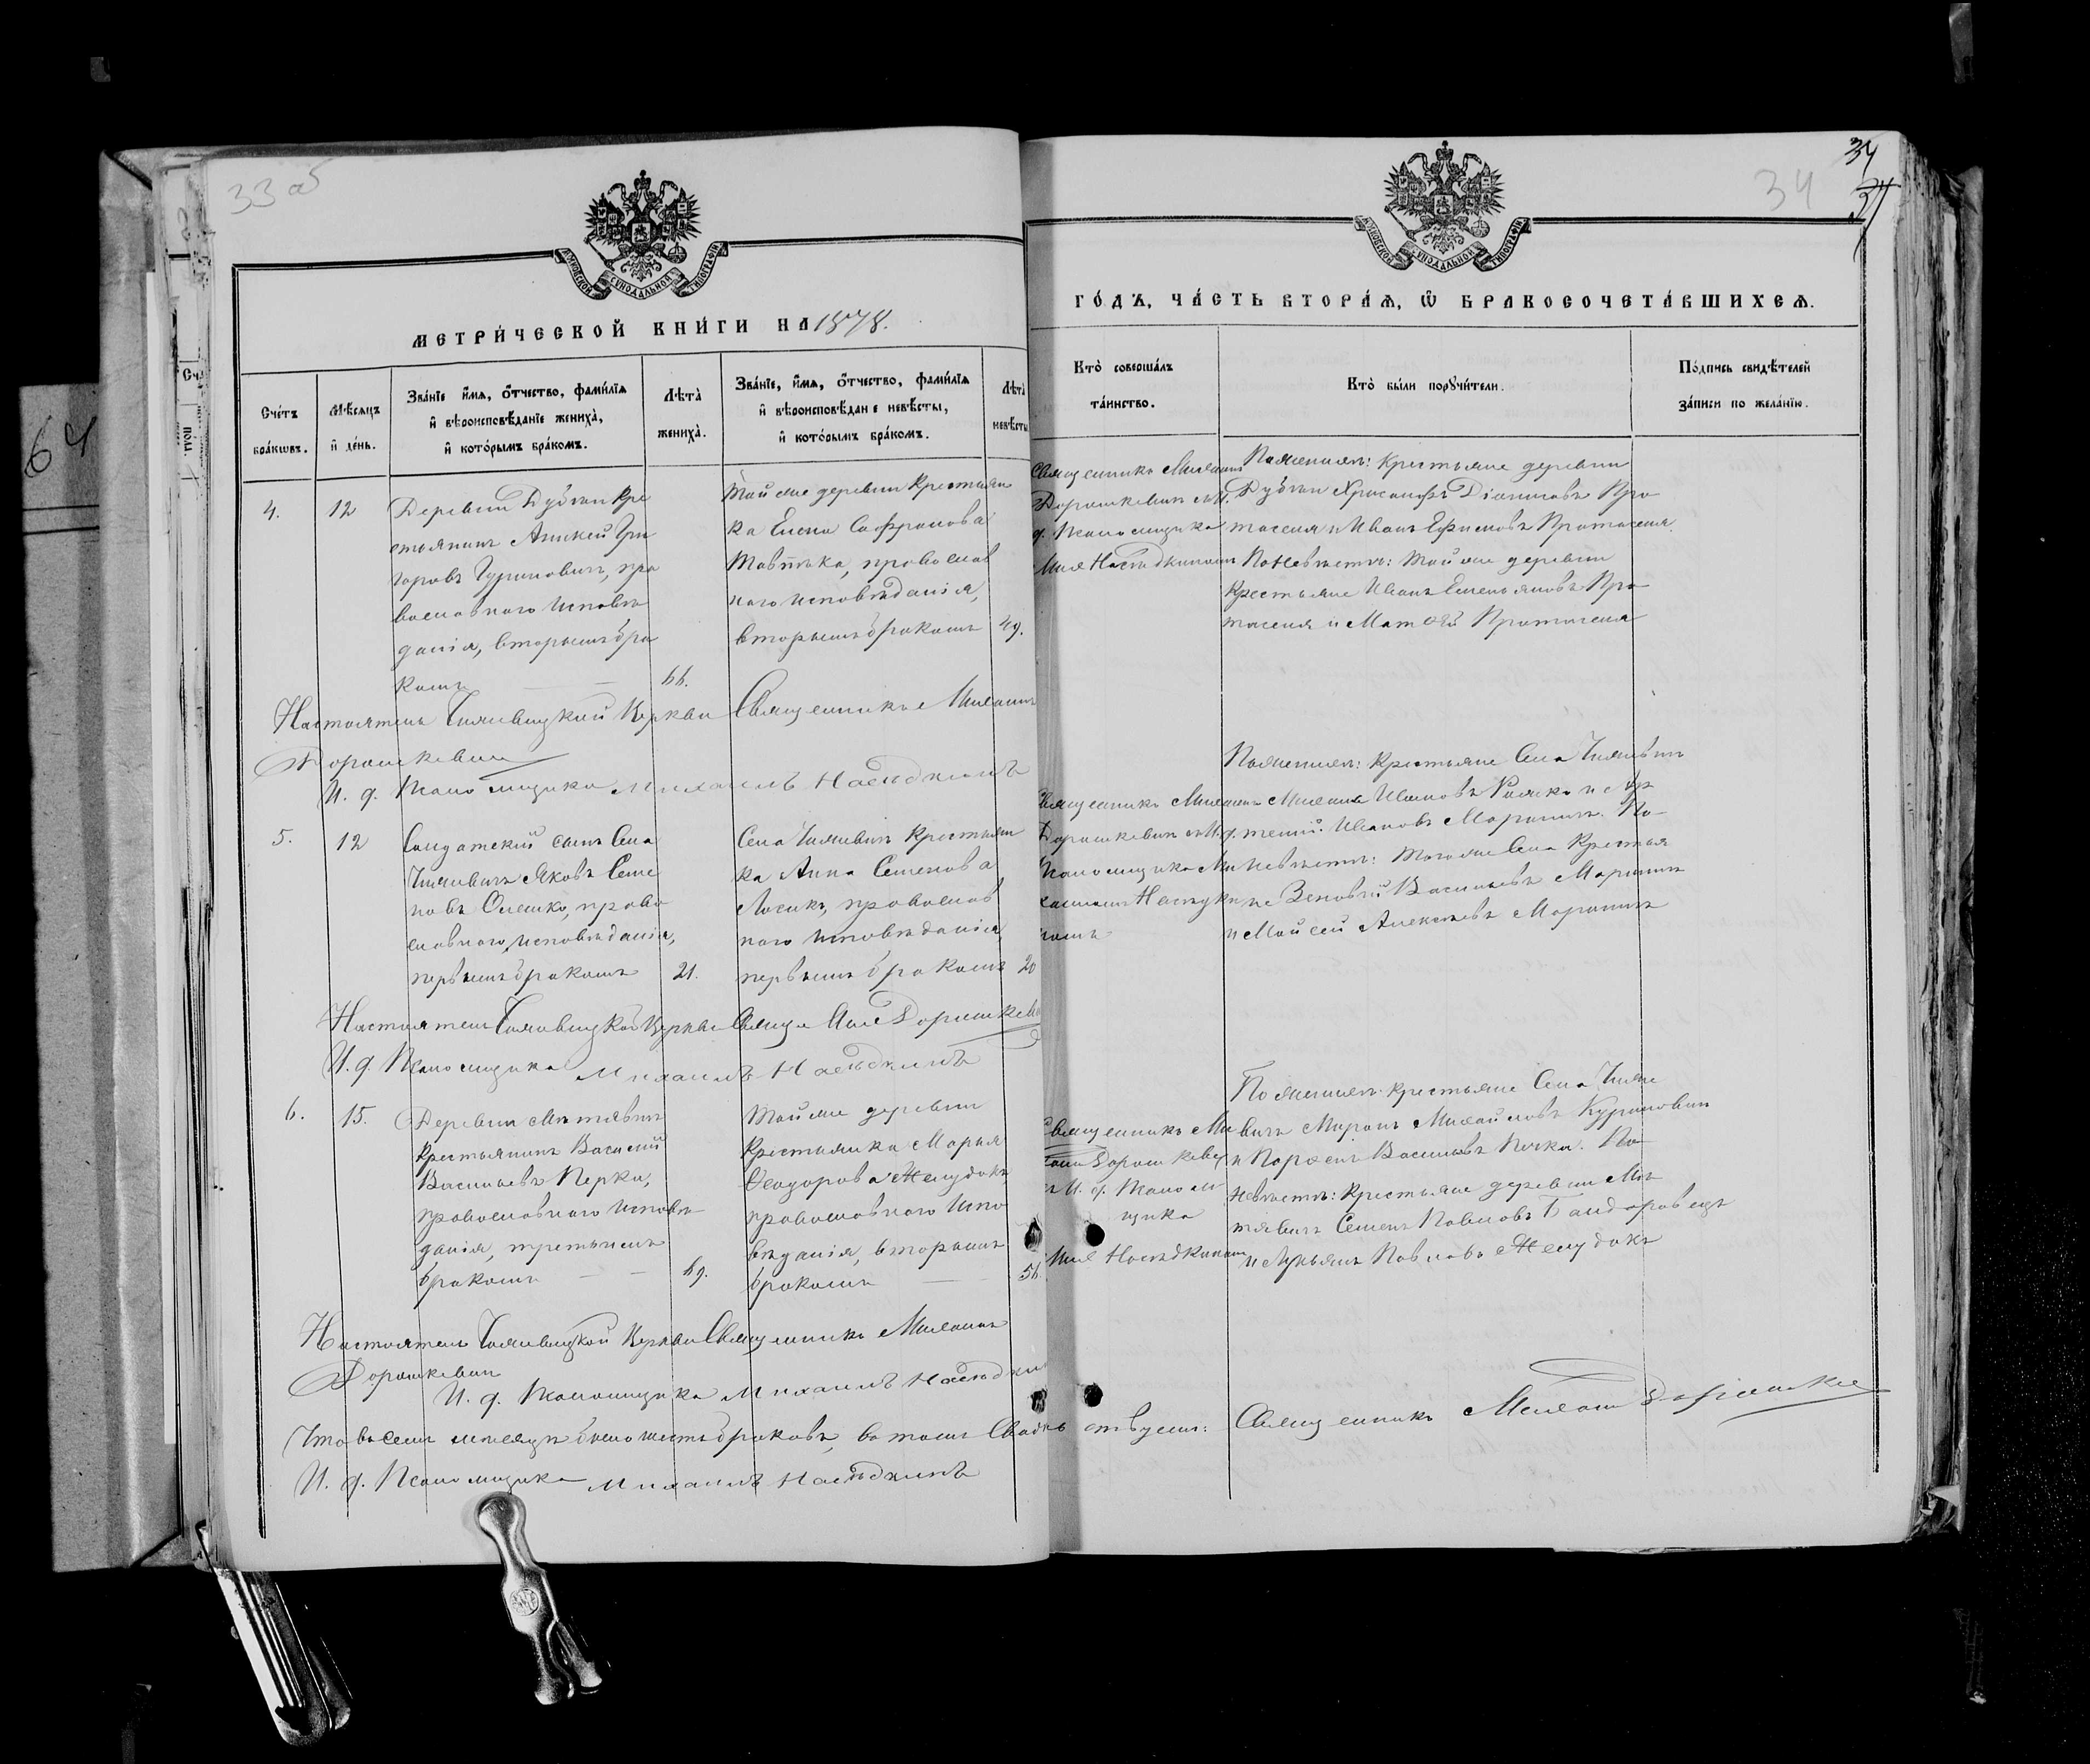 33 об
34
34
37
64
МЕТРИ́ЧЕСКОЙ КНИ́ГИ НА 1878.
ГО́ДЪ, ЧА́СТЬ ВТОРА́Ѧ, Ѿ БРАКОСОЧЕТА́ВШИХСѦ.
Сче́тъ бра́кѡвъ.
Мѣ́сѧцъ и҆ де́нь.
Зва́нїе и҆́мѧ, о҆́тчество, фами́лїѧ и҆ вѣроисповѣ́данїе жениха̀, и҆ кото́рымъ бра́комъ.
Лѣта̀ жениха̀.
Зва́нїе, и҆́мѧ, о҆́тчество, фами́лїѧ и҆ вѣроисповѣ́дан е невѣ́сты, и҆ кото́рымъ бра́комъ.
Лѣта̀ невѣ́сты
Кто̀ соверша́лъ та́инство.
Кто̀ бы́ли порꙋчи́тели.
По́дпись свидѣ́телей за́писи по жела́нїю.
4.
12
Деревни Дубчи Кре
стьянинъ Аникей Гри
горовъ Гуринович, пра
вославного исповѣ
данія, вторымъ бра
комъ
66.
Той же деревни крестьян
ка Елена Сафронова
православ
ного исповѣданія,
вторымъ бракомъ
49.
Священникъ Михаилъ
Дорошкевич съ И.
д. Псаломщика
Мих Наследкиномъ
По женихѣ: Крестьяне деревни
Дубчи Хрисанфъ Діонисовъ Про
тасеня и Иванъ Ефимовъ Протасеня.
По Невѣстѣ: Той же деревни
Крестьяне Иванъ Емельяновъ Про
тасеня и Матфей Протасеня
Настоятель Чижевицкой Церкви Священникъ Михаилъ
Дорошкевич
И. д. Псаломщика Михаилъ Наследкинъ
5.
12
Солдатский сынъ Села
Чижевичъ Яковъ Семе
новъ Олешко, право
славного, исповѣданія,
первымъ бракомъ
21.
Села Чижевичъ Крестьян
ка Анна Семенова
Лосикъ, православ
ного исповѣданія,
первымъ бракомъ
20
Священникъ Михаилъ
Дорошкевич съ И. д.
Псаломщика Ми
хаиломъ Наследки
номъ
По женихѣ: Крестьяне Села Чижевич
Михаилъ Ивановъ и Ар
темій Ивановъ Маринич. По
Невѣстѣ: Того же Села Крестья
не Зеновій Васильевъ Маринич
и Мойсей Алексѣевъ Маринич
Настоятель Чижевицкой Церкви Священ Мих Дорошкевич
И. д. Псаломщика Михаилъ Наследкинъ
6.
15.
Деревни Мѣтявичъ
Крестьянинъ Василий
Васильевъ Перка,
православного исповѣ
данія, третьимъ
бракомъ
69.
Той же деревни
Крестьянка Марья
Феодорова Желудокъ
православного испо
вѣданія, вторымъ
бракомъ
56.
Священникъ Ми
хаилъ Дорошкевич
съ И. д. Псаломщика
Мих Наследкиномъ
По женихѣ: крестьяне Села Чиже
вичъ Миронъ Михайловъ Куринович
и Парфенъ Васильевъ. По
Невѣстѣ: Крестьяне деревни Мѣ
тявичъ Семенъ Павловъ Бандоровецъ
и Лукьянъ Павловъ Желудокъ
Настоятель Чижевицкой Церкви Священникъ Михаилъ
Дорошкевич
И. д. Псаломщика Михаилъ Наследкин
Что въ семъ месяцѣ было шесть браковъ, въ томъ Свидѣтельствуемъ: Священникъ Михаилъ Дорошкев
И. д. Псаломщика Михаилъ Наследкинъ